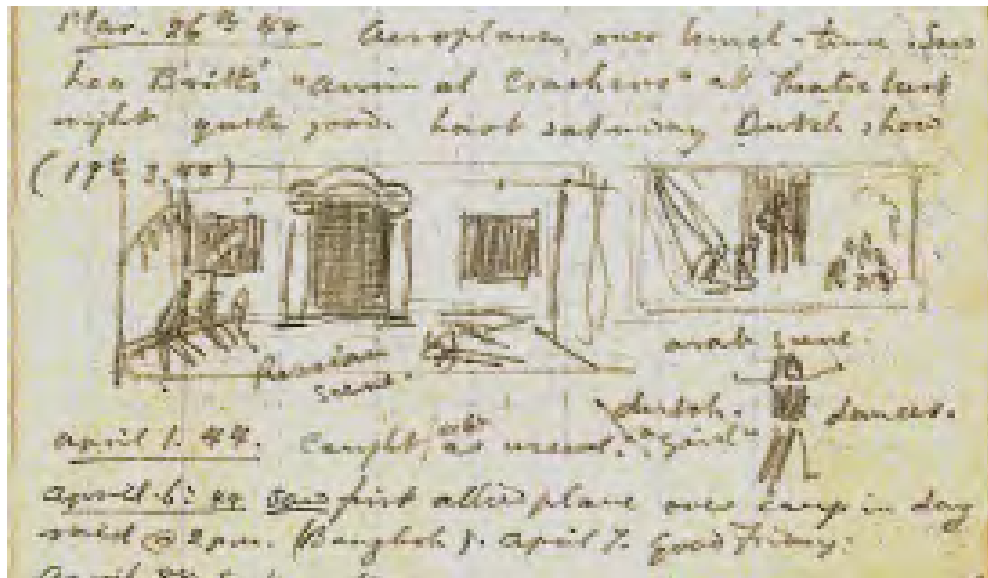 Mar. 26th 44 Aeroplanes over lunch-time. Saw
Leo Britt's "Animal Crackers" at Theatre last
night quite good. Last Dutch show
(19th 3.44)
Russian
scene.
arab scene.
dutch. dancer.
april 1. 44. Caught, as usual. "Girl"
April 6: 44 Saw first allied plane over camp in day
raid @ 2 pm. (Bangkok). April 7. Good Friday.